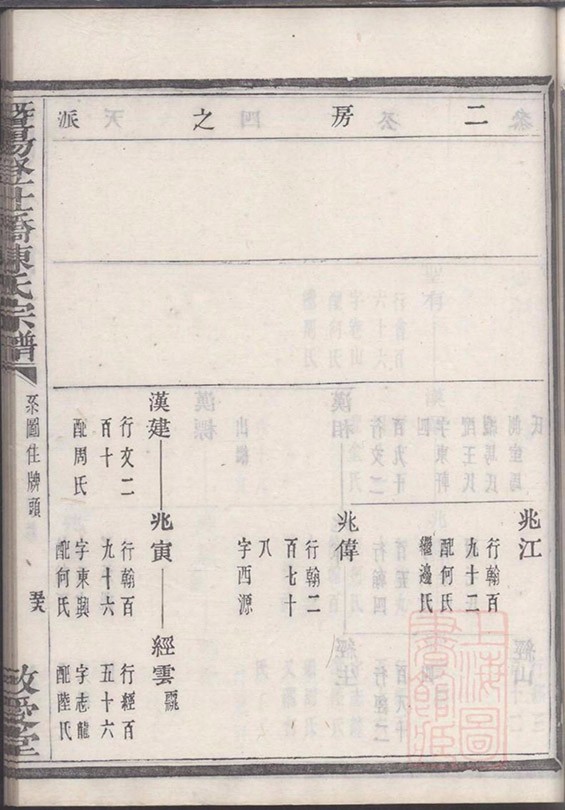 二房之派
兆江
行翰百
九十二
配何氏
繼邊氏
兆偉
行翰二
百七十
八
字西源
漢建
行文二
百十
配周氏
兆寅
行翰百
九十六
字東興
配何氏
經雲
行經百
五十六
字志龍
配陸氏
暨陽登仕橋陳氏宗譜
系圖住牌頭
敬愛堂
上海圖書館藏